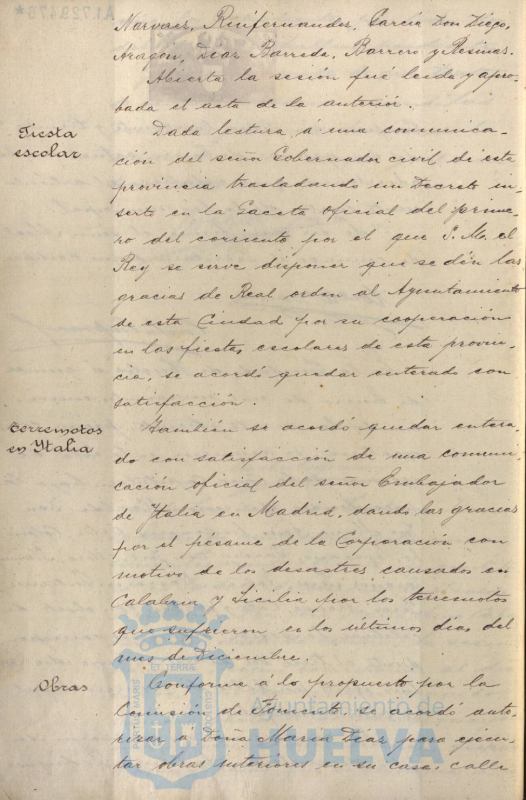 A1.729.476*
Narvaez, Ruifernandez, García Don Diego,
Aragón, Diaz Barreda, Barrero y Resinas.
Abierta la sesión fué leida y apro-
bada el acta de la anterior.
Fiesta
escolar
Dada lectura á una comunica-
ción del señor Gobernador civil de esta
provincia trasladando un Decreto in-
serto en la Gaceta oficial del prime-
ro del corriente por el que S. M. el
Rey se sirve disponer que se dén las
gracias de Real orden al Ayuntamiento
de esta Ciudad por su cooperación
en las fiestas escolares de esta provin-
cia, se acordó quedar enterado con
satisfacción.
Terremotos
en Ytalia
También se acordó quedar entera-
do con satisfacción de una comuni-
cación oficial del señor Embajador
de Ytalia en Madrid, dando las gracias
por el pésame de la Corporación con
motivo de los desastres causados en
Calabria y Sicilia por los terremotos
que sufrieron en los últimos dias del
mes de Diciembre.
Obras
Conforme á lo propuesto por la
Comisión de Fomento, se acordó auto-
rizar a Doña Maria Diaz para ejecu-
tar obras interiores en su casa, calle
Ayuntamiento de
HUELVA